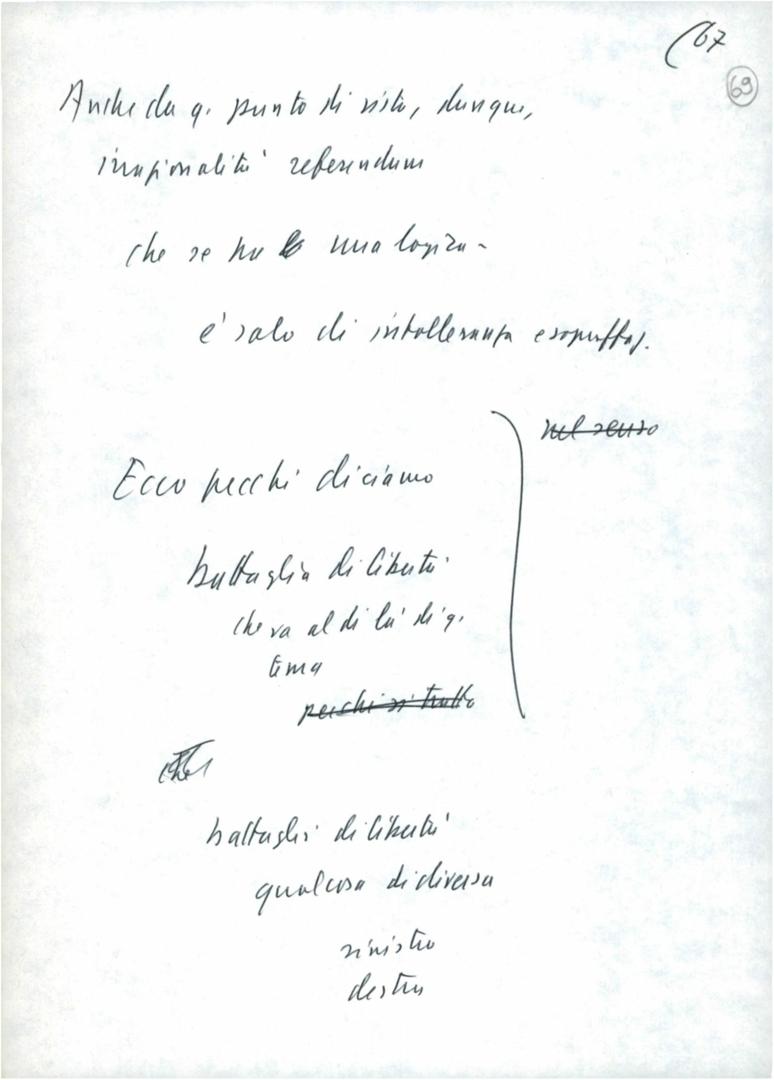 67
69
Anche da q. punto di vista, dunque,
irrazionalità referendum
che se ha una logica -
è solo di intolleranza e sopraffaz.
nel senso
Ecco perché diciamo
battaglia di libertà
che va al di là di q.
tema
perché si tratta
battaglia di libertà
qualcosa di diverso
sinistra
destra